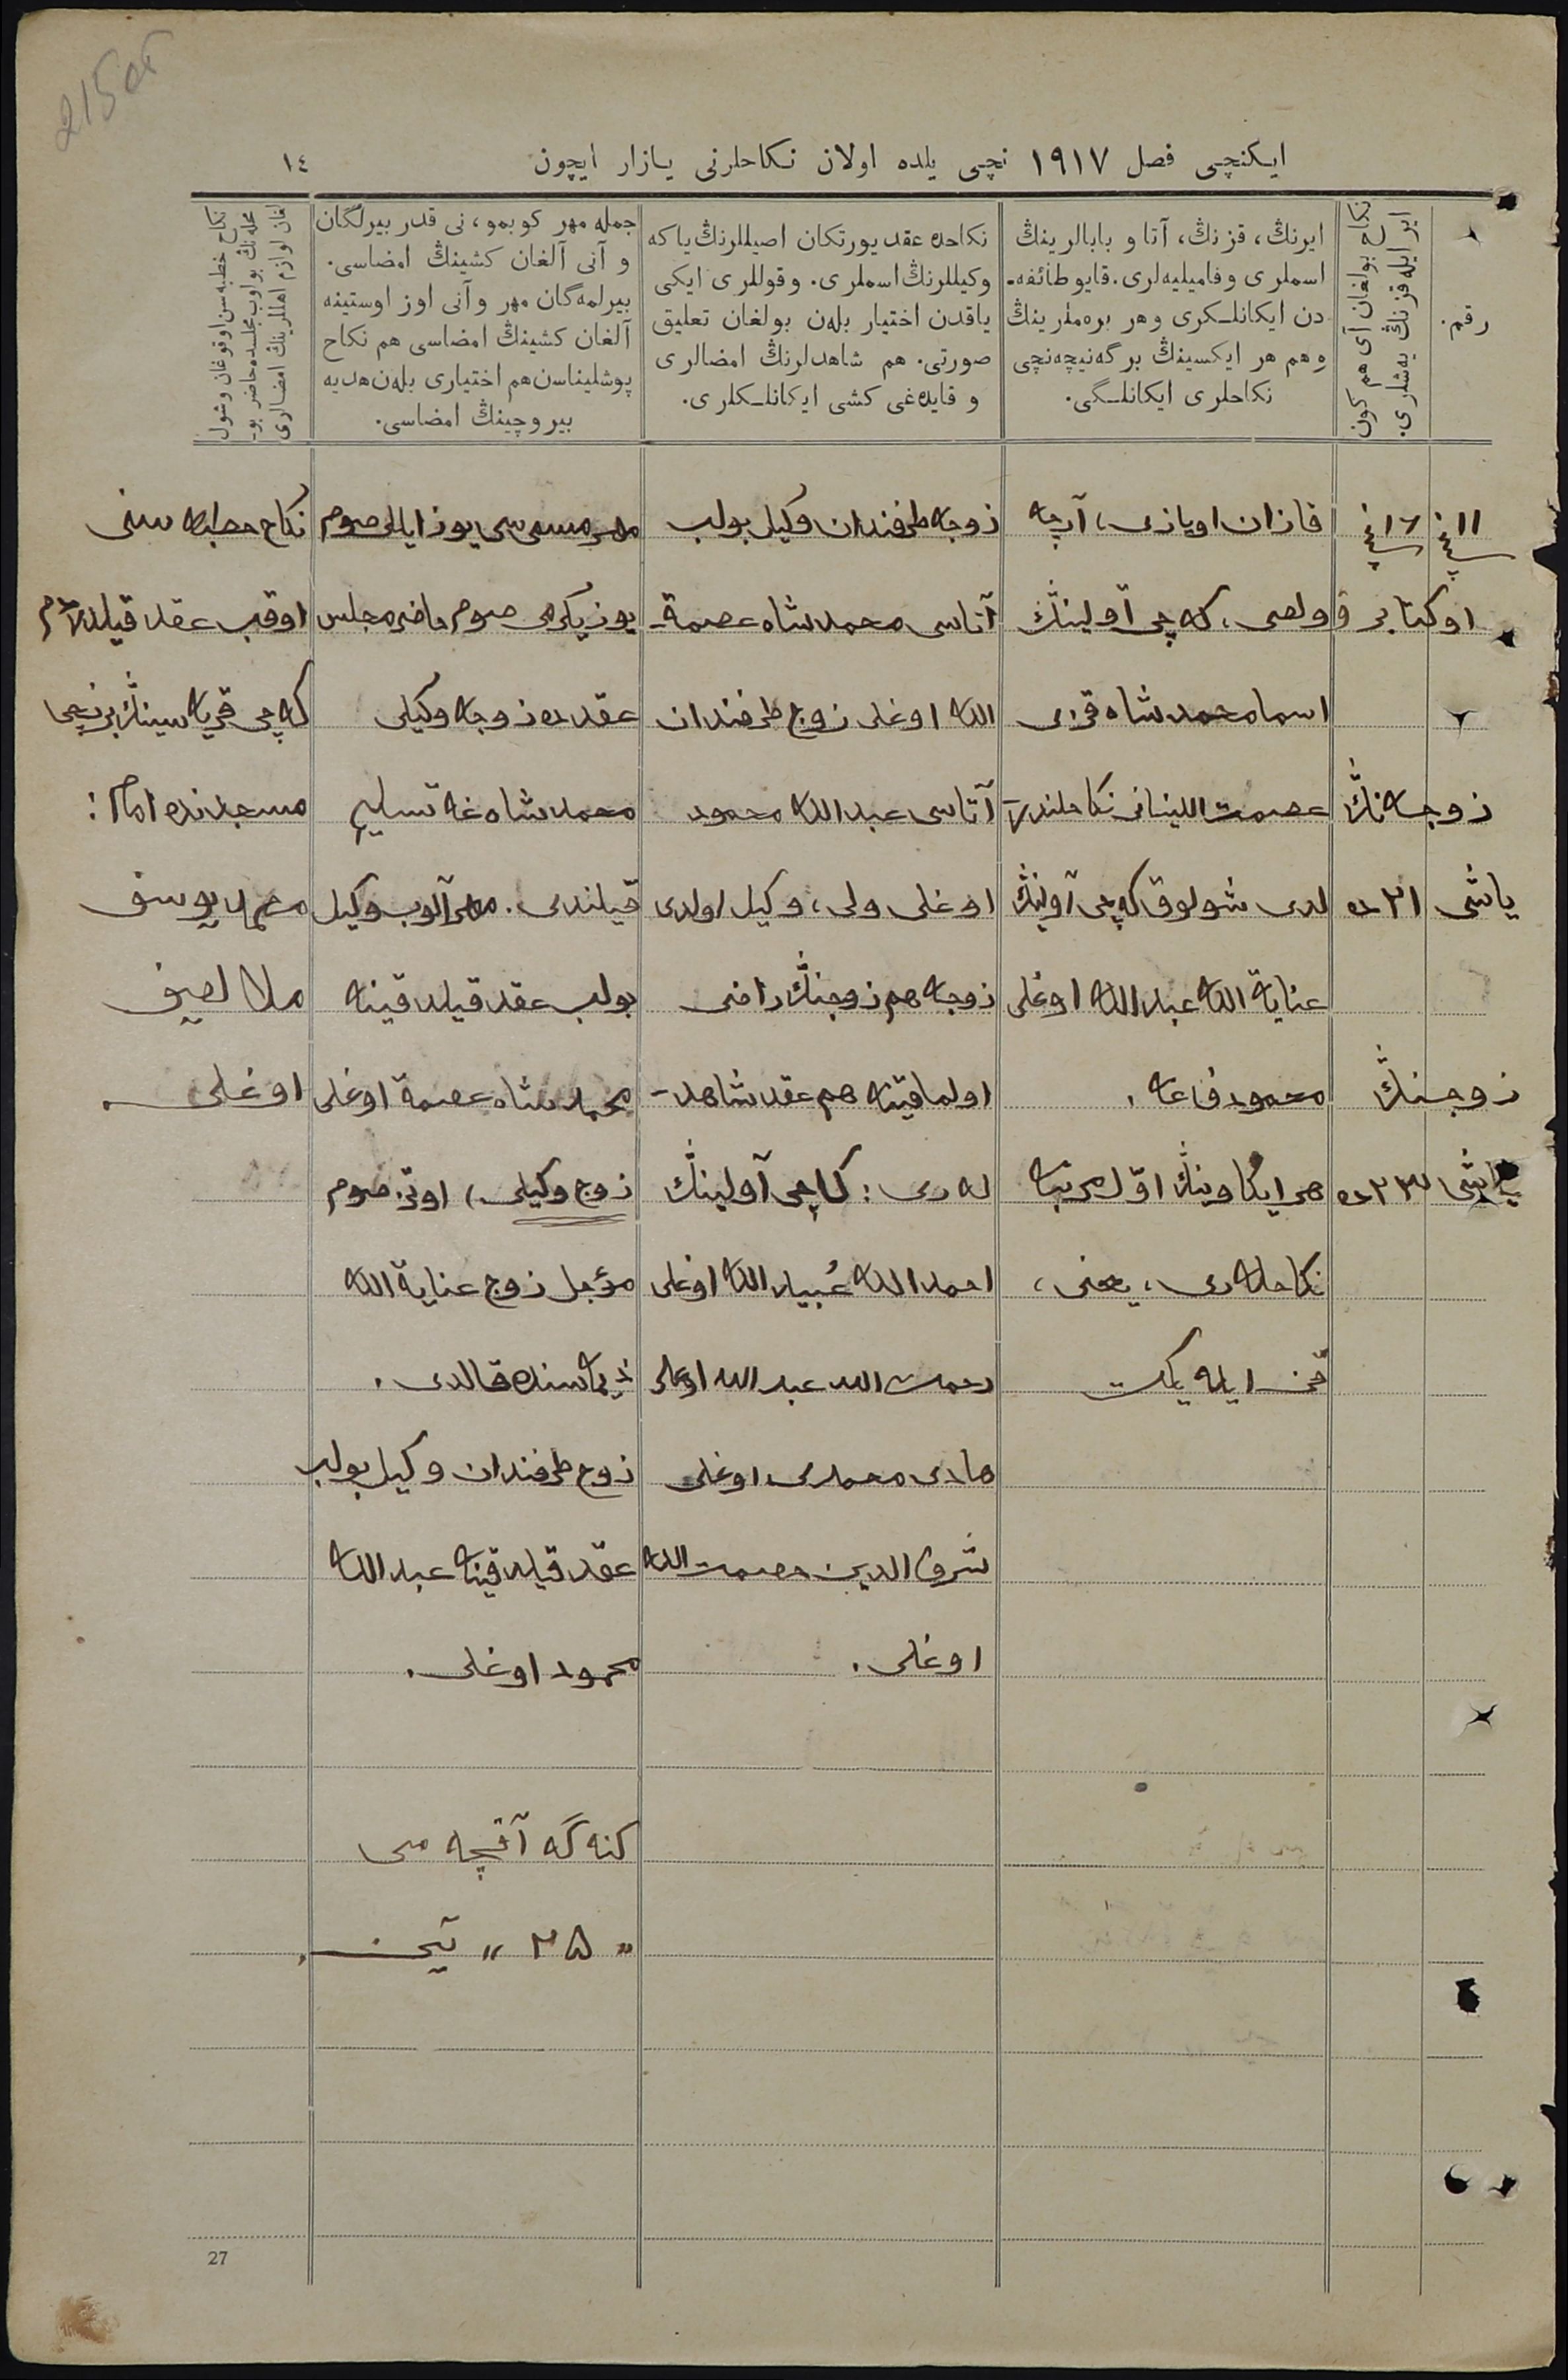 2150б
ایکنچی فصل ١٩١٧ نچی یلده اولان نکاحلرنی یازار ایچون
١٤
رقم.
نکاح بولغان آی هم کون
ایر ایله قزنڭ یه‌شلری.
ایرنڭ، قزنڭ، آتا و بابالرینڭ
اسملری وفامیلیه‌لری. قایو طائفه‌ـ
دن ایکانلـکری وهر بره‌ملرینڭ
وهم هر ایکسینڭ برگه‌نیچه‌نچی
نکاحلری ایکانلـگی.
نکاحده عقد یورتکان اصیللرنڭ یا که
وکیللرنڭ اسملری. وقوللری ایکی
یاقدن اختیار بله‌ن بولغان تعلیق
صورتی. هم شاهدلرنڭ امضالری
و قایده‌غی کشی ایکانلـکلری.
جمله مهر کوبمو، نی قدر بیرلگان
و آنی آلغان کشینڭ امضاسی.
بیرلمه‌گان مهر وآنی اوز اوستینه
آلغان کشینڭ امضاسی هم نکاح
پوشلیناسن هم اختیاری بله‌ن هدیه
بیروچینڭ امضاسی.
نکاح خطبه‌سن اوقوغان وشول
محله‌نڭ بو اوب مجلسده حاضر بو‌ـ
لغان لوازم اهللرینڭ امضالری
١١ نچی
١٦ نچی
اوکتابر
زوجه‌نڭ
یاشی ٢١ ده
زوجنڭ
یاشی ٢٣ ده
قازان اویازی، آرچه
وولصی، که چی آولینڭ
اسما محمدشاه قزی
عصمت اللینانی نکاحلندر
لدی شولوق که چی آولینڭ
عنایة الله عبدالله اوغلی
محمود فاعه.
هر ایکاوینڭ اوّل مرتبه
نکاحله‌ری، یعنی،
قز ایله یکت
زوجه طرفندان وکیل بولب
آتاسی محمدشاه عصمة‌ـ
الله اوغلی زوج طرفندان
آتاسی عبدالله محمود
اوغلی ولی، وکیل اولدی
زوجه هم زوجنڭ راضی
اولماقینه هم عقد شاهد‌ـ
له‌ری: که چی آولینڭ
احمدالله عُبیدالله اوغلی
رحمت الله عبدالله اوغلی
هادی محمدی اوغلی
شرف الدین عصمت الله
اوغلی.
مهر مسمی‌سی یوز ایللی صوم
یوز یکرمی صوم حاضر مجلس
عقدده زوجه وکیلی
محمدشاه‌غه تسلیم
قیلندی. مهر آلوب وکیل
بولب عقد قیلدقینه
محمدشاه عصمة اوغلی
زوج وکیلی، اوتز صوم
مؤجل زوج عنایة الله
ذمّه‌سنده قالدی.
زوج طرفندان وکیل بولب
عقد قیلدقینه عبدالله
محمود اوغلی.
کنه‌گه آقچه سی
„ ٢٥ „ تین.
نکاح خطبه سنی
اوقب عقد قیلدردم
که چی قریه سینڭ برنچی
مسجدنده امام:
محمدیوسف
ملا لصیف
اوغلی
27